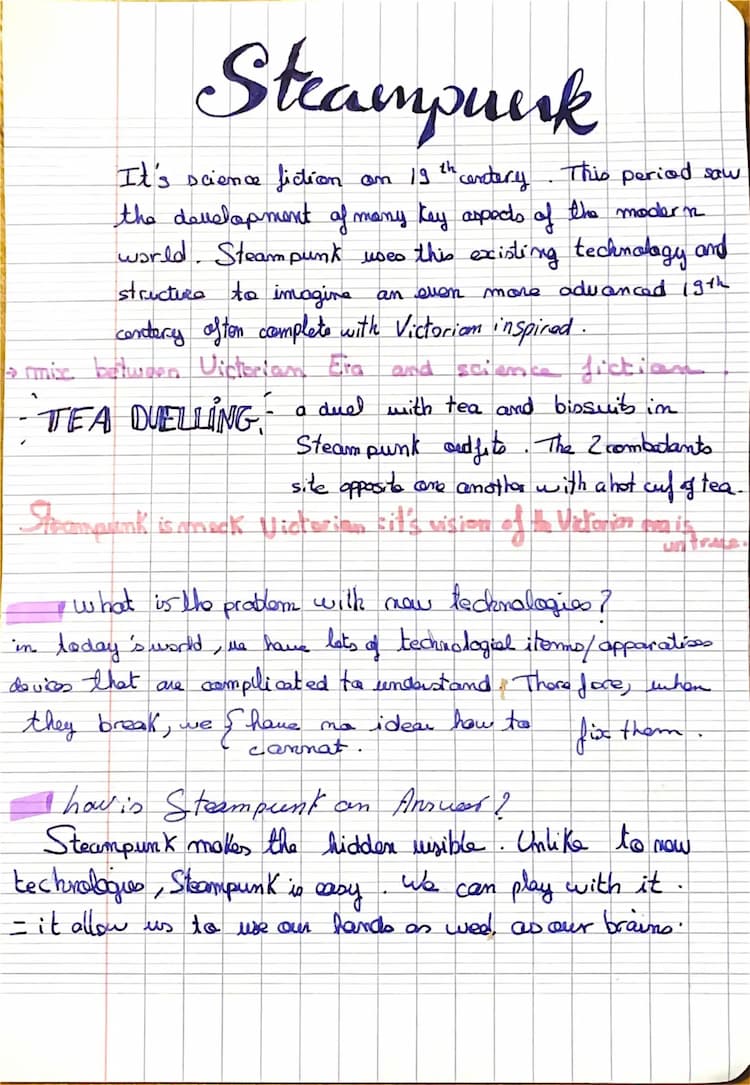 Steampunk
It's science fiction on 19th century. This period saw
the development of many key aspects of the modern
world. Steampunk uses this existing technology and
structure to imagine an even more advanced 19th
century often complete with Victorian inspired.
→ mix between Victorian Era and science fiction.
- TEA DUELLING - a duel with tea and biscuits in
Steampunk outfits. The 2 combatants
sits opposite one another with a hot cup of tea.
Steampunk is mock Victorian : it's vision of the Victorian era is
untrue.
What is the problem with new technologies?
in today's world, we have lots of technological items/apparatises
devices that are complicated to understand. Therefore, when
they break, we { have no idea how to fix them.
cannot.
how is Steampunk an Answer?
Steampunk makes the hidden visible. Unlike to new
technologies, Steampunk is easy. We can play with it.
= it allow us to use our hands as well as our brains.